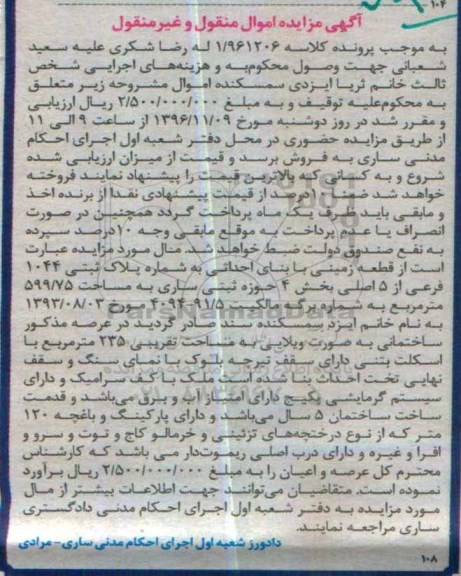 ۱۰۴
آگهی مزایده اموال منقول و غیرمنقول
به موجب پرونده کلاسه ۱/۹۶۱۲۰۶ له رضا شکری علیه سعید
شعبانی جهت وصول محکوم‌به و هزینه‌های اجرایی شخص
ثالث خانم ثریا ایزدی سمسکنده اموال مشروحه زیر متعلق
به محکوم‌علیه توقیف و به مبلغ ۲/۵۰۰/۰۰۰/۰۰۰ ریال ارزیابی
و مقرر شد در روز دوشنبه مورخ ۱۳۹۶/۱۱/۰۹ از ساعت ۹ الی ۱۱
از طریق مزایده حضوری در محل دفتر شعبه اول اجرای احکام
مدنی ساری به فروش برسد و قیمت از میزان ارزیابی شده
شروع و به کسانی که بالاترین قیمت را پیشنهاد نمایند فروخته
خواهد شد ضمنا ۱۰ درصد از قیمت پیشنهادی نقدا از برنده اخذ
و مابقی باید ظرف یک ماه پرداخت گردد همچنین در صورت
انصراف یا عدم پرداخت به موقع مابقی وجه ۱۰درصد سپرده
به نفع صندوق دولت ضبط خواهد شد. مال مورد مزایده عبارت
است از قطعه زمینی با بنای احداثی به شماره پلاک ثبتی ۱۰۴۴
فرعی از ۵ اصلی بخش ۴ حوزه ثبتی ساری به مساحت ۵۹۹/۷۵
مترمربع به شماره برگه مالکیت ۹۱/۵-۴۰۹۴ مورخ ۱۳۹۳/۰۸/۰۳
به نام خانم ایزد سمسکنده سند صادر گردید در عرصه مذکور
ساختمانی به صورت ویلایی به مساحت تقریبی ۲۳۵ مترمربع با
اسکلت بتنی دارای سقف تیرچه بلوک با نمای سنگ و سقف
نهایی تخت احداث بنا شده است ملک با کف سرامیک و دارای
سیستم گرمایشی پکیج دارای امتیاز آب و برق می‌باشد و قدمت
ساخت ساختمان ۵ سال می‌باشد و دارای پارکینگ و باغچه ۱۲۰
متر که از نوع درختچه‌های تزئینی و خرمالو کاج و توت و سرو و
افرا و غیره و دارای درب اصلی ریموت‌دار می باشد که کارشناس
محترم کل عرصه و اعیان را به مبلغ ۲/۵۰۰/۰۰۰/۰۰۰ ریال برآورد
نموده است. متقاضیان می‌توانند جهت اطلاعات بیشتر از مال
مورد مزایده به دفتر شعبه اول اجرای احکام مدنی دادگستری
ساری مراجعه نمایند.
دادورز شعبه اول اجرای احکام مدنی ساری- مرادی
۱۰۸